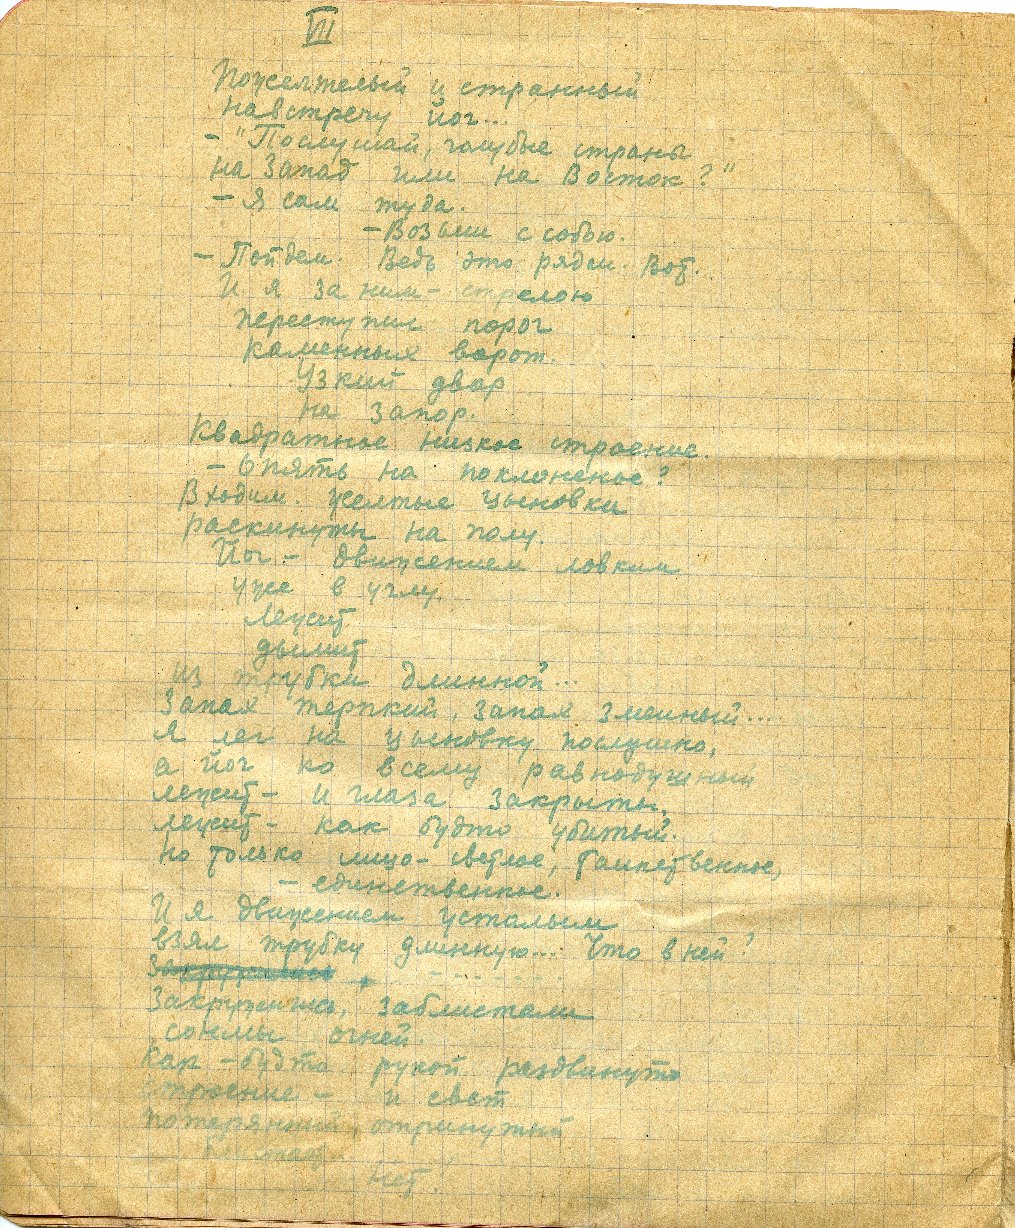 VII
Пожелтелый и странный
навстречу йог...
- "Послушай, голубые страны
на Запад или на Восток?"
- Я сам туда.
- Возьми с собою.
- Пойдем. Ведь это рядом. Вот.
И я за ним - стрелою
переступил порог
каменных ворот.
Узкий двор
на запор.
Квадратное низкое строение.
- Опять на поклоненье?
Входим. Желтые цыновки
раскинуты на полу.
Йог - движением ловким
уже в углу.
Лежит
дымит
из трубки длинной...
Запах терпкий, запах змеиный...
Я лег на цыновку послушно,
а йог ко всему равнодушный
лежит - и глаза закрыты.
лежит - как будто убитый.
но только лицо - светлое, таинственное,
- единственное.
И я движением усталым
взял трубку длинную... Что в ней?
Закружились, заблистали
сонмы огней.
Как-будто рукой раздвинуто
строение - и свет
потерянный, отринутый
Нет!